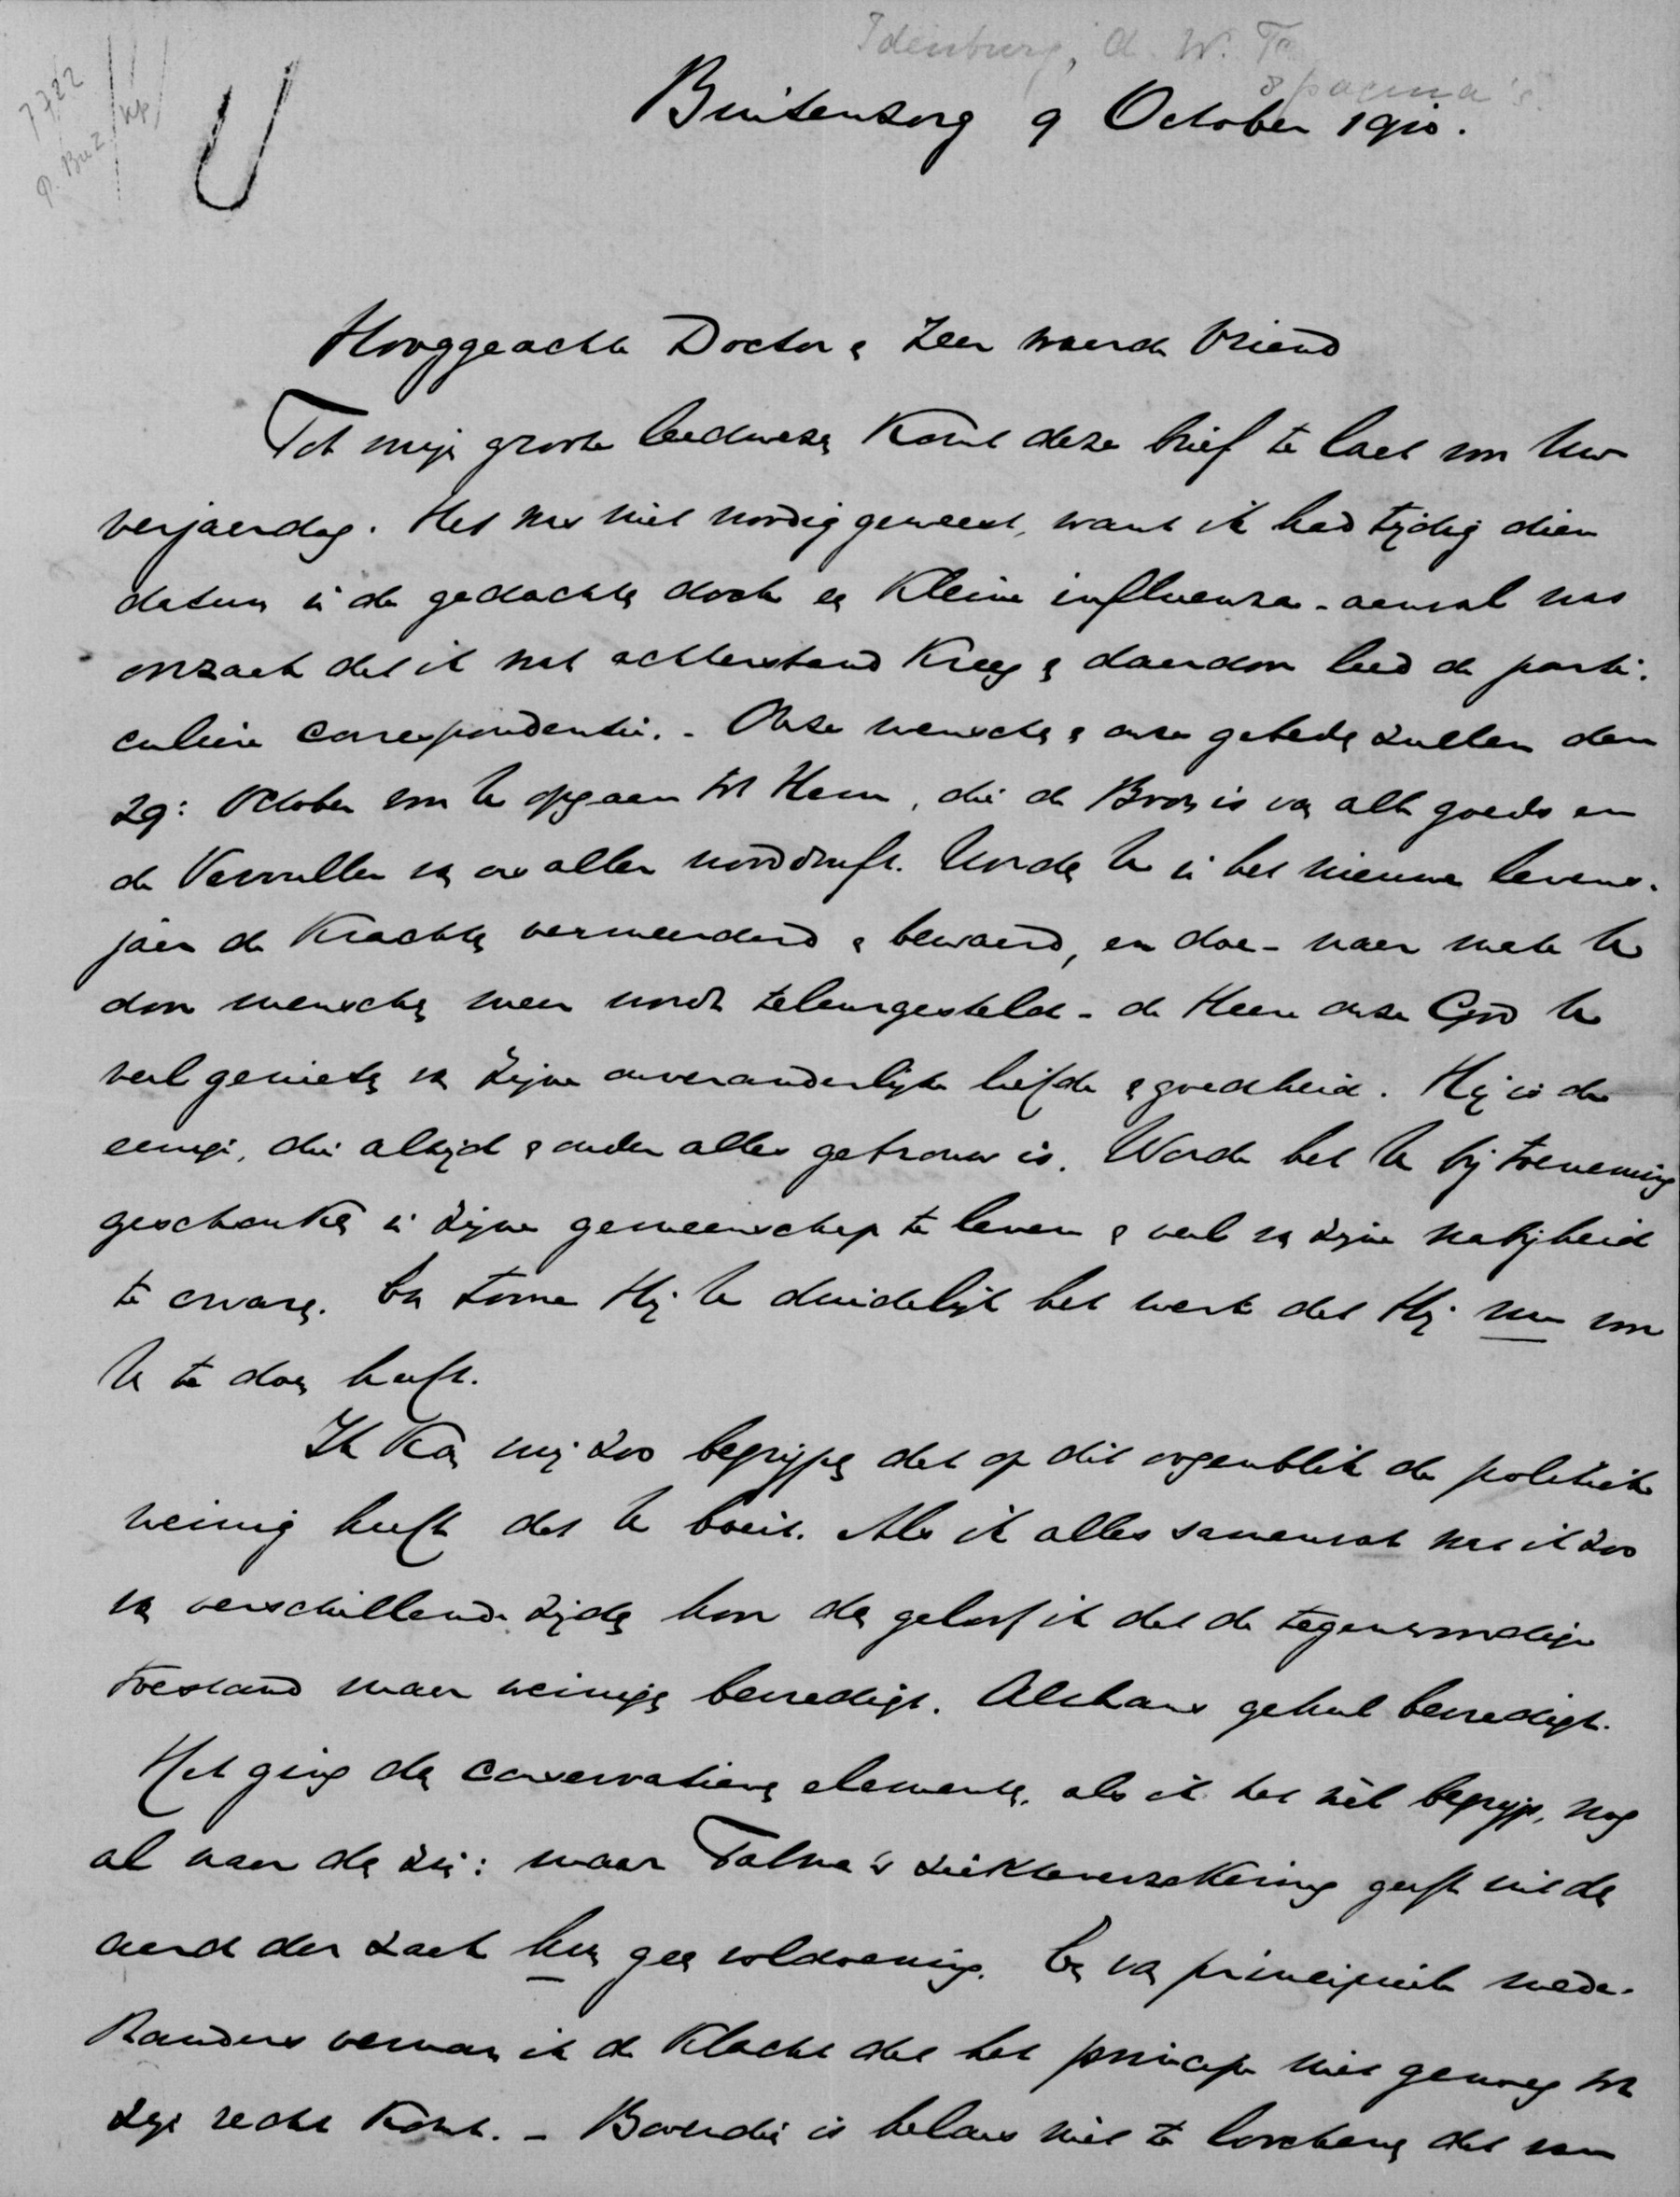 Idenburg, A. W. F.
8 pagina's.
7722
P. Buz / Kp /
Buitenzorg 9 October 1910.
Hooggeachte Doctor & zeer waarde Vriend
Tot mijn groote leedwezen komt deze brief te laat voor Uw
verjaardag. Het was niet noodig geweest, want ik had tijdig dien
datum in de gedachten doch een kleine influenza-aanval was
oorzaak dat ik wat achterstand kreeg & daardoor leed de parti-
culiere correspondentie. - Onze wenschen & onze gebeden zullen den
29: October voor U opgaan tot Hem, die de Bron is van alle goeds en
de Vervuller van ons aller nooddruft. Worden U in het nieuwe levens-
jaar de krachten vermeerderd & bewaard, en doe - naar mate U
door menschen meer wordt teleurgesteld - de Heere onze God U
veel genieten van Zijne onveranderlijke liefde & goedheid. Hij is de
eenige, die altijd & onder alles getrouw is. Worde het U bij toeneming
geschonken in Zijne gemeenschap te leven & veel van Zijne nabijheid
te ervaren. En toone Hij U duidelijk het werk dat Hij nu voor
U te doen heeft.
Ik kan mij zoo begrijpen dat op dit oogenblik de politiek
weinig heeft dat U boeit. Als ik alles samenvat wat ik zoo
van verschillende zijden hoor dan geloof ik dat de tegenwoordige
toestand maar weinigen bevredigt. Althans geheel bevredigt.
Het ging den conservatieven elementen, als ik het wèl begrijp, nog
al naar den zin: maar Talma's ziekteverzekering geeft uit den
aard der zaak hun geen voldoening. En van principieele mede-
standers verneem ik de klacht dat het principe niet genoeg tot
zijn recht komt. - Bovendien is helaas niet te loochenen dat van